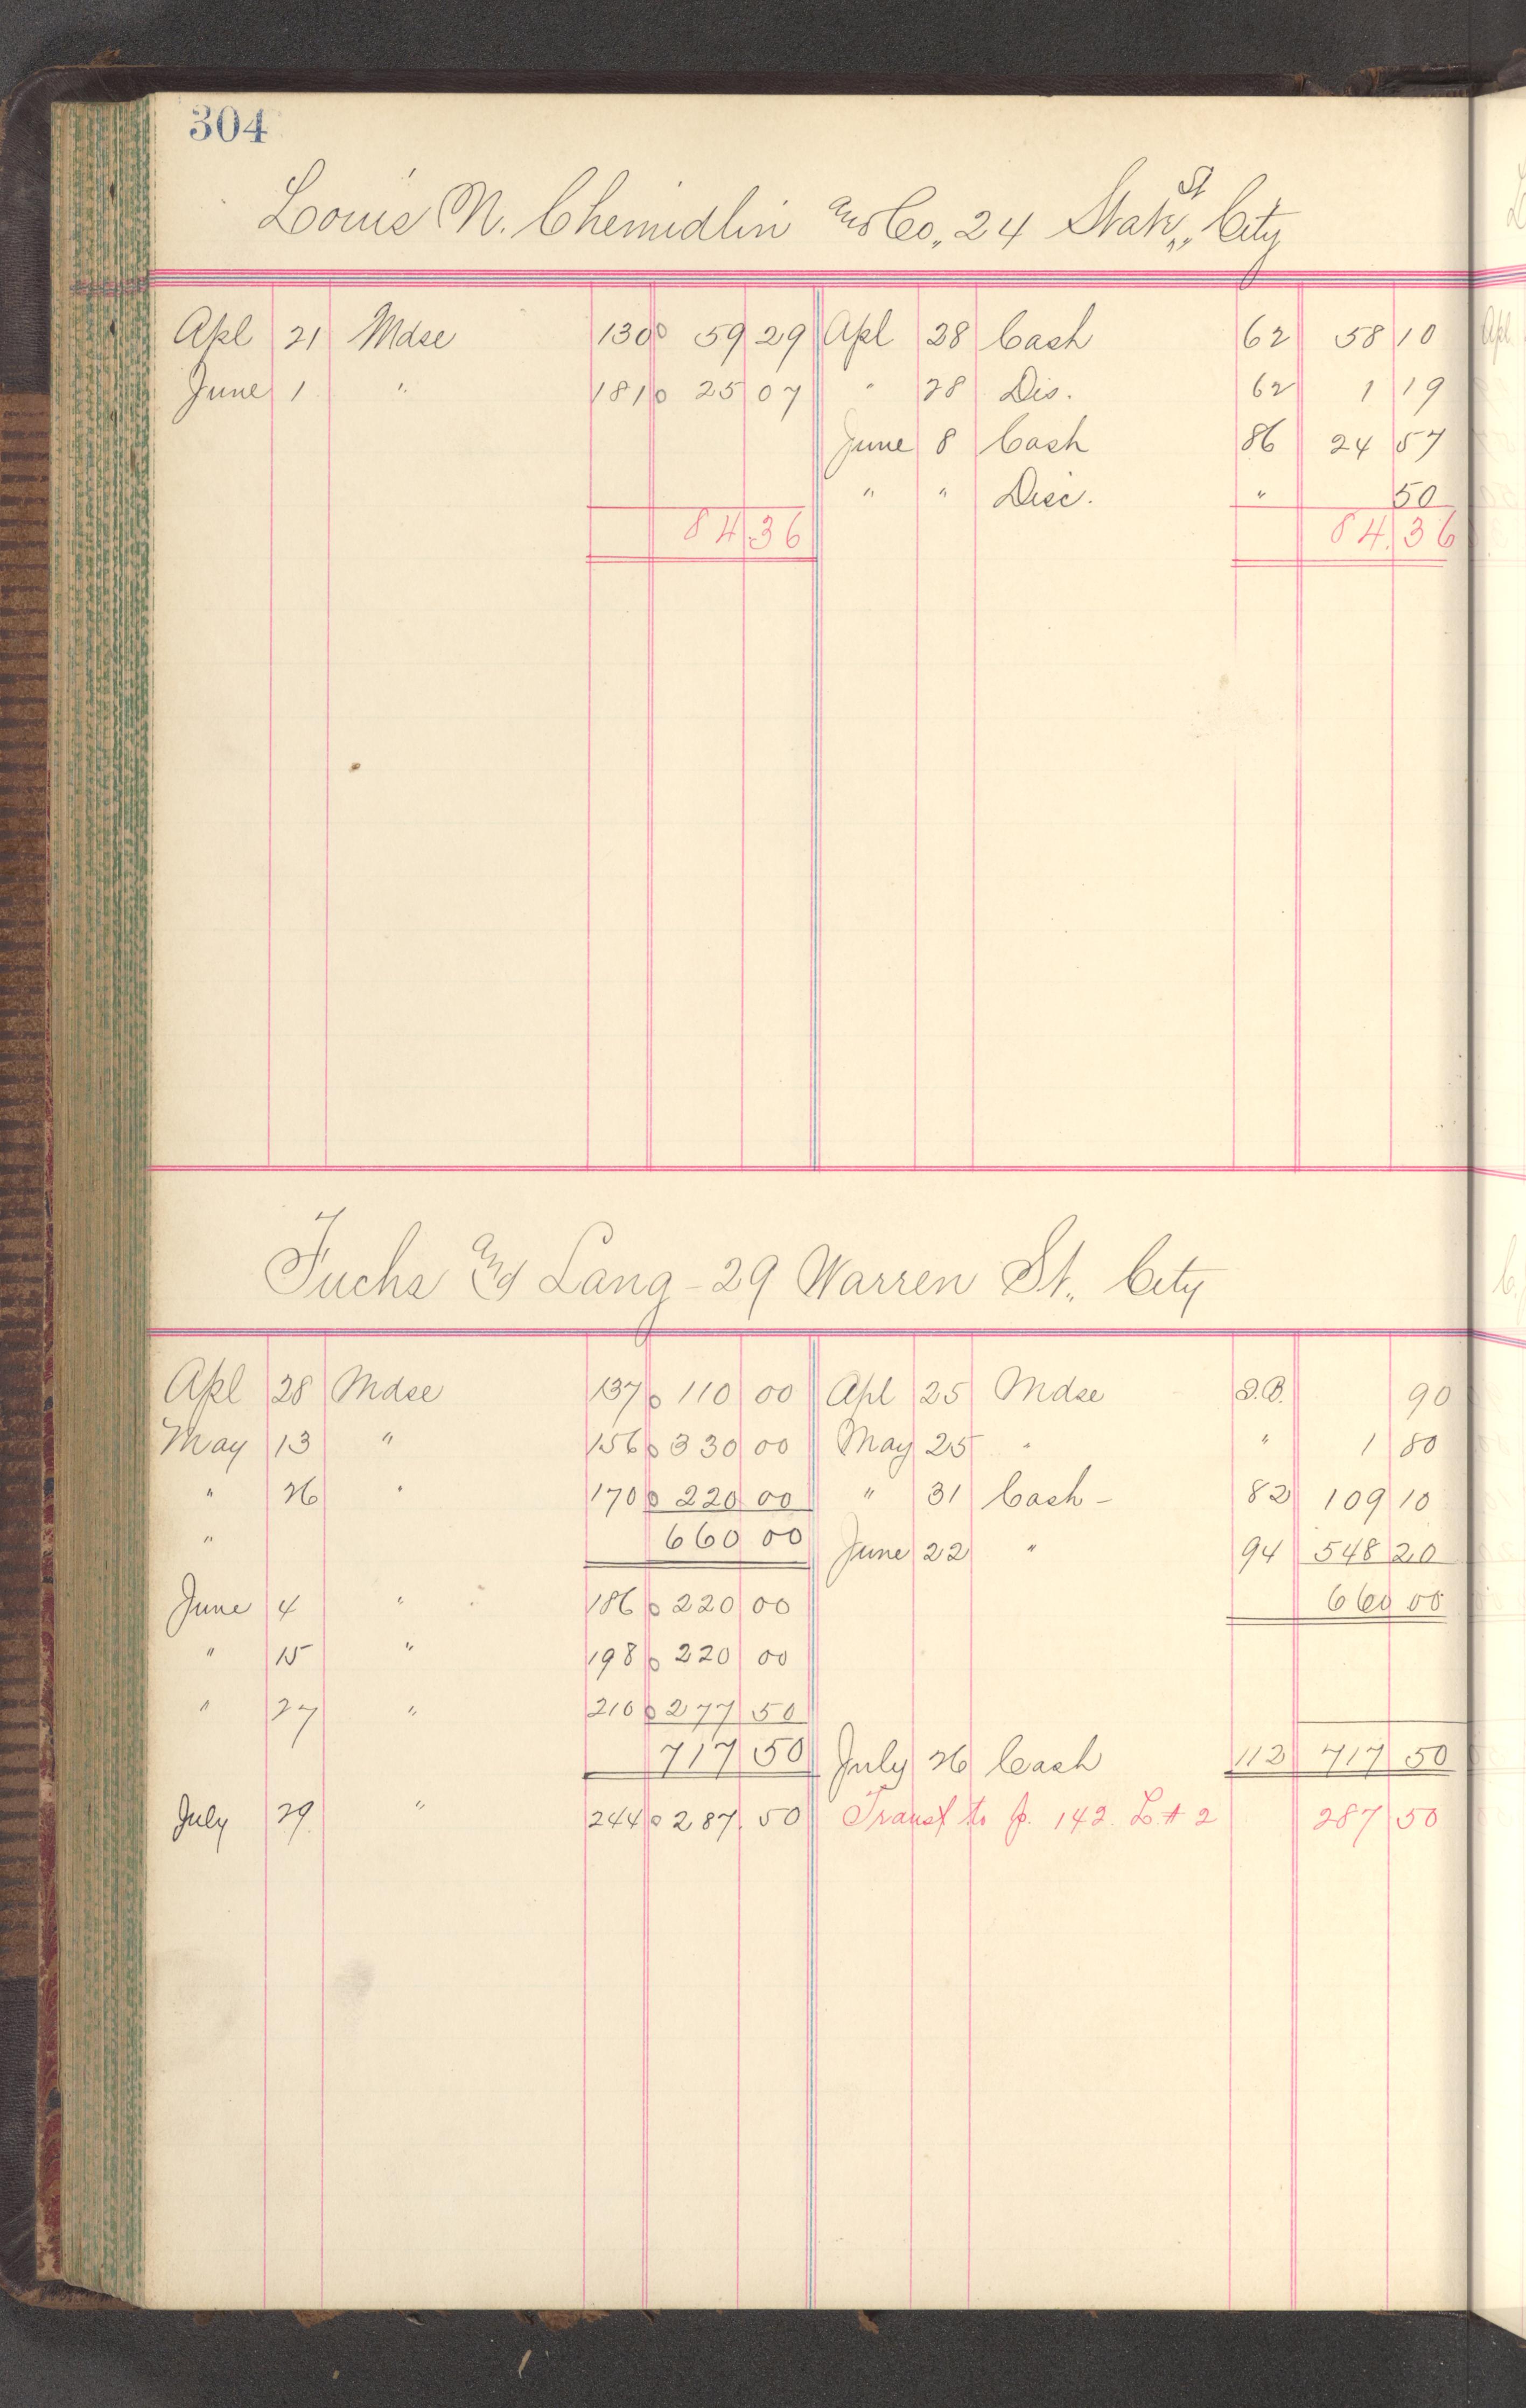 304
Louis N. Chemidlin and Co., 24 State St., City
Apl 21 Mdse 130 59 29 Apl 28 Cash 62 58 10
June 1 " 181 25 07 " 28 Dis. 62 1 19
June 8 Cash 86 24 57
" " Disc. " 50
84.36 84.36
Fuchs and Lang - 29 Warren St., City
Apl 28 Mdse 137 110 00 Apl 25 Mdse 90
May 13 " 156 330 00 May 25 " " 1 80
" 26 " 170 220 00 " 31 Cash - 82 109 10
" 660 00 June 22 " 94 548 20
June 4 " 186 220 00 660 00
" 15 " 198 220 00
" 27 " 210 277 50
717 50 July 26 Cash 112 717 50
July 29 " 244 287.50 Transf to p. 142. L. # 2 287 50